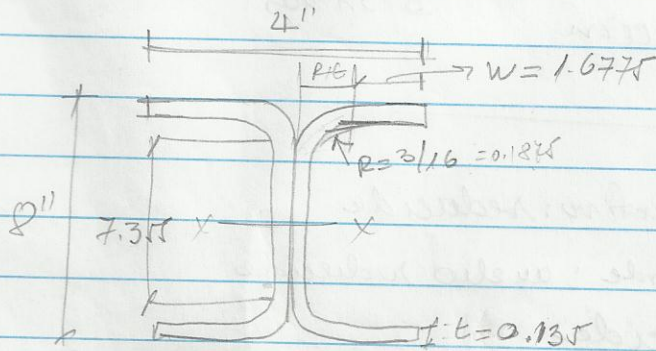 4"
R+t
W = 1.6775
R=3/16 =0.1875
8"
7.355
X
X
t=0.135